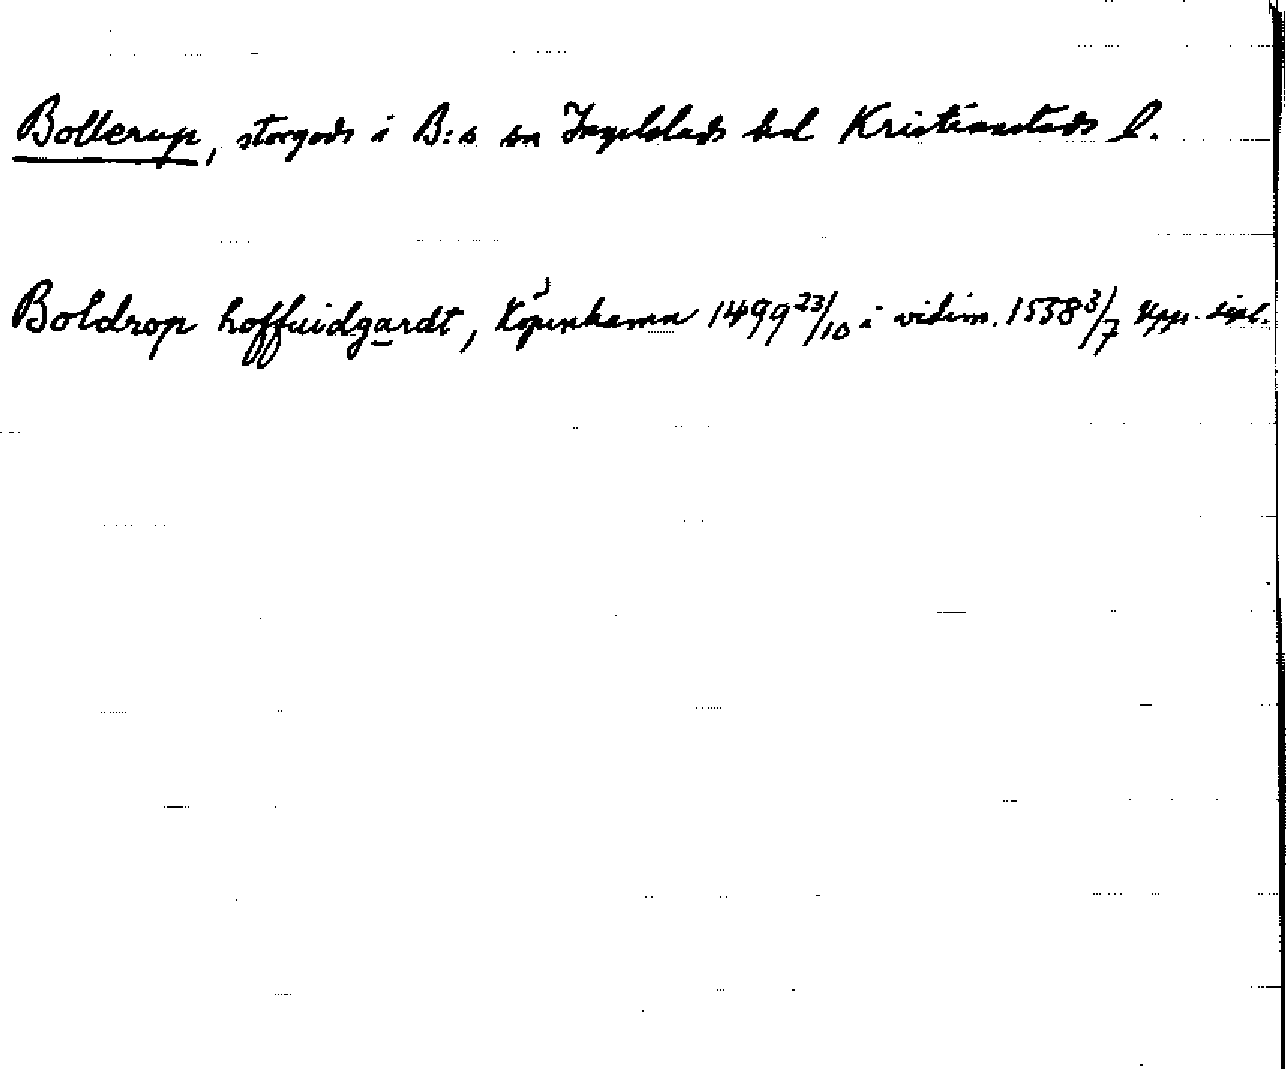 Bollerup, storgods i B:s sn Ingelstads hd Kristianstads l.
Boldrop hoffuidgardt, Köpenhamn 1499 23/10 i vidim. 1558 3/7 Upps. dipl.